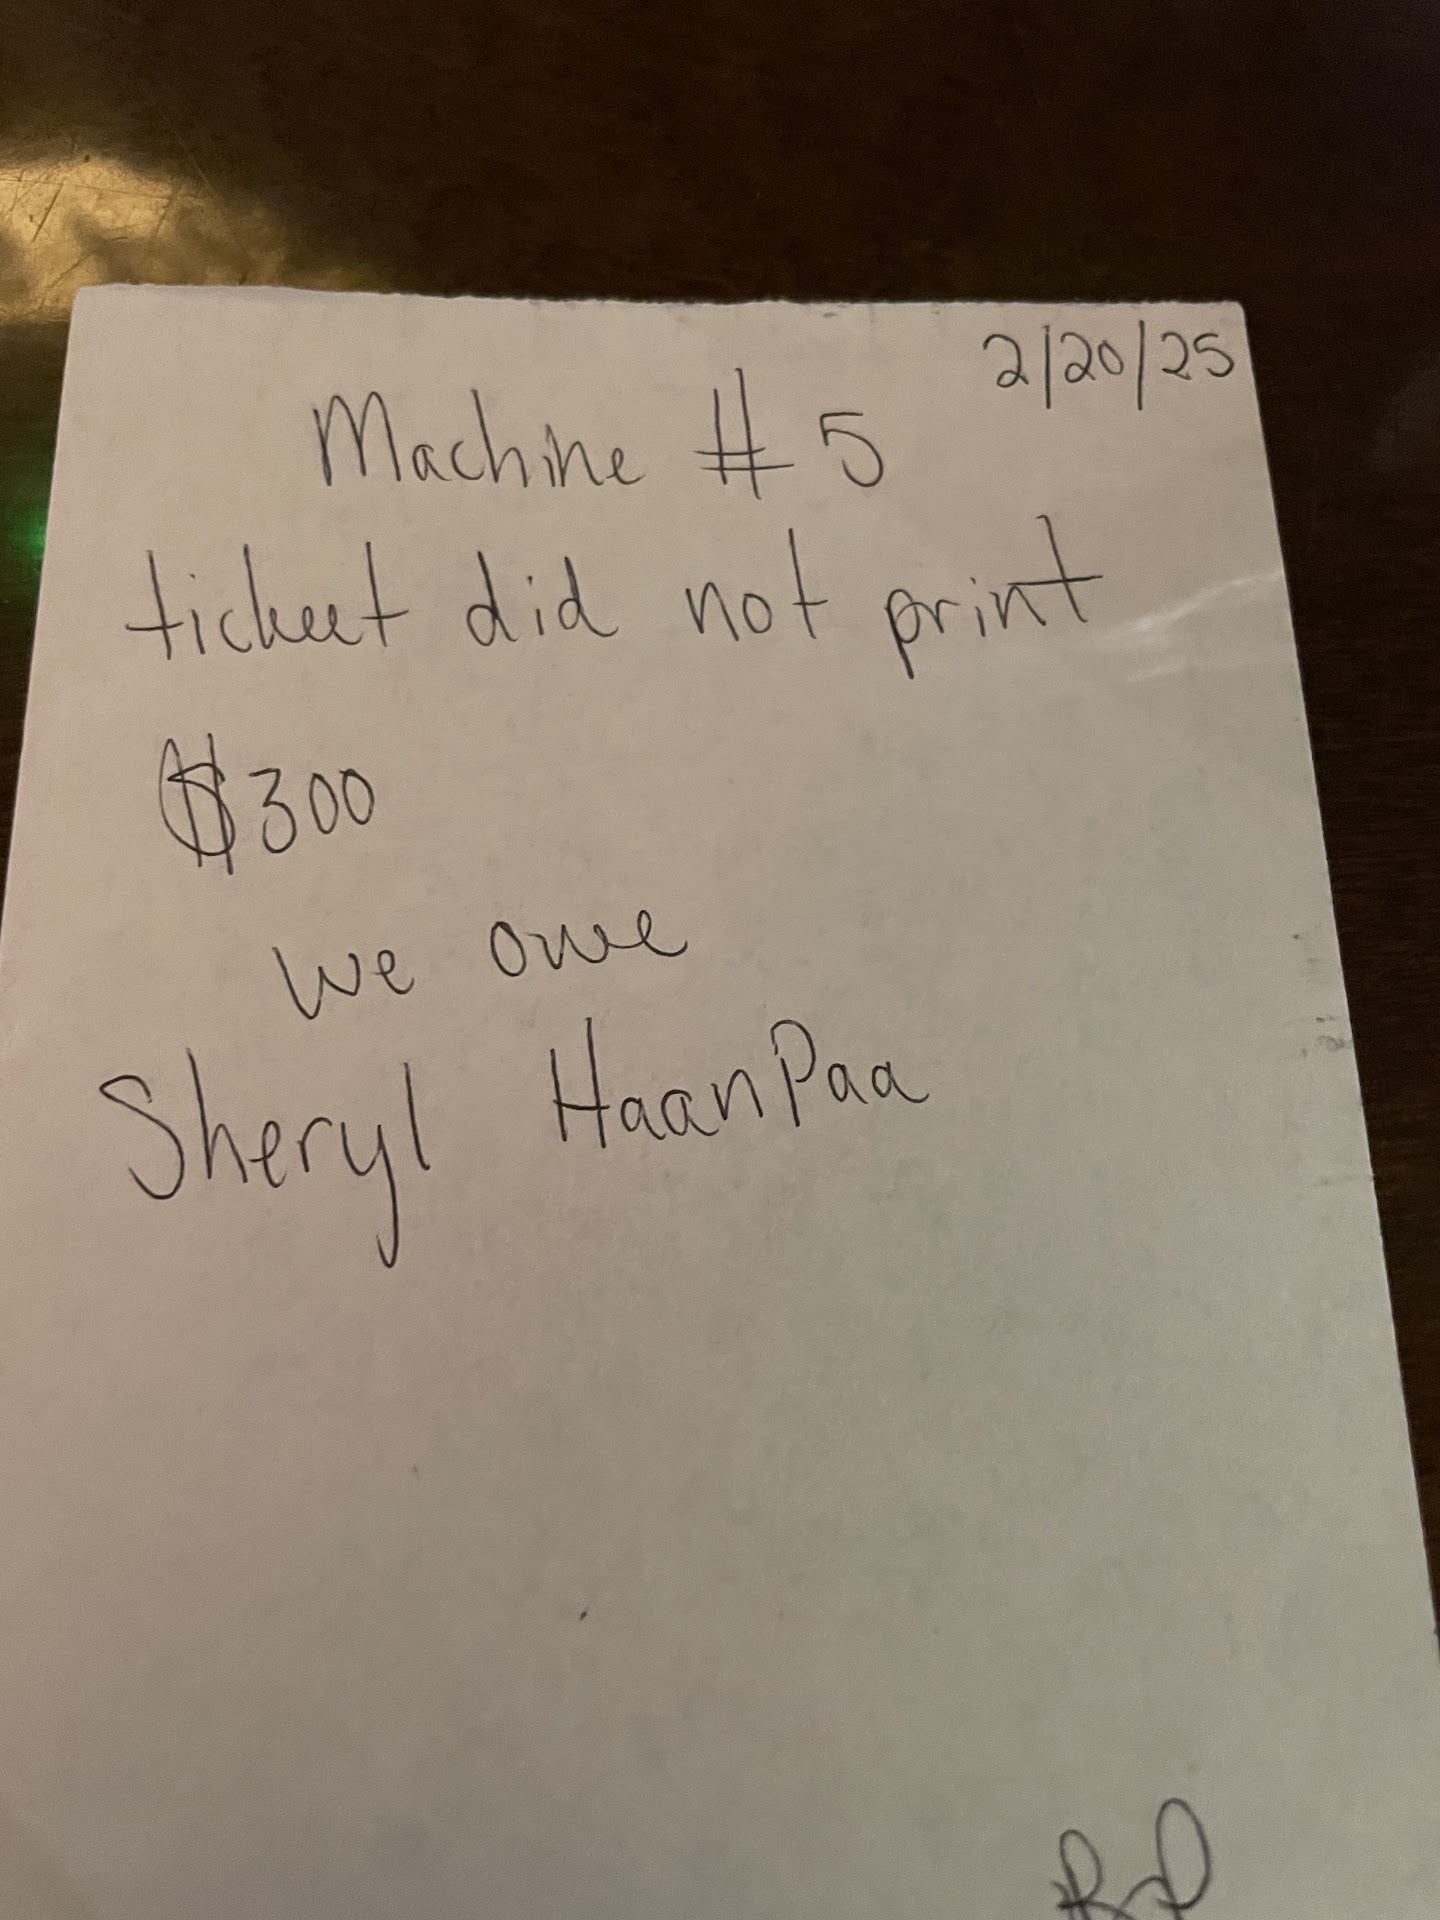 2/20/25
Machine # 5
ticket did not print
$300
we owe
Sheryl HaanPaa